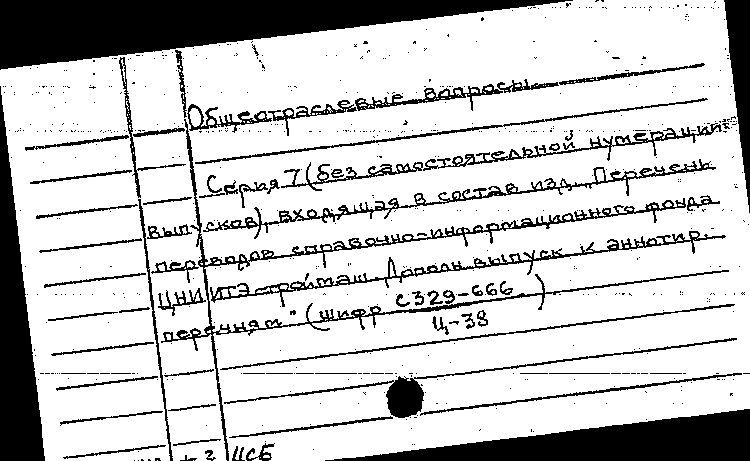 Общеотраслевые вопросы.
Серия 7 (без самостоятельной нумерации
выпусков), входящая в состав изд. „Перечень
переводов справочно-информационного фонда
ЦНИИТЭстроймаш. Дополн. выпуск к аннотир.
перечням" (шифр С329-666 / Ц-38)
3 ЦСБ